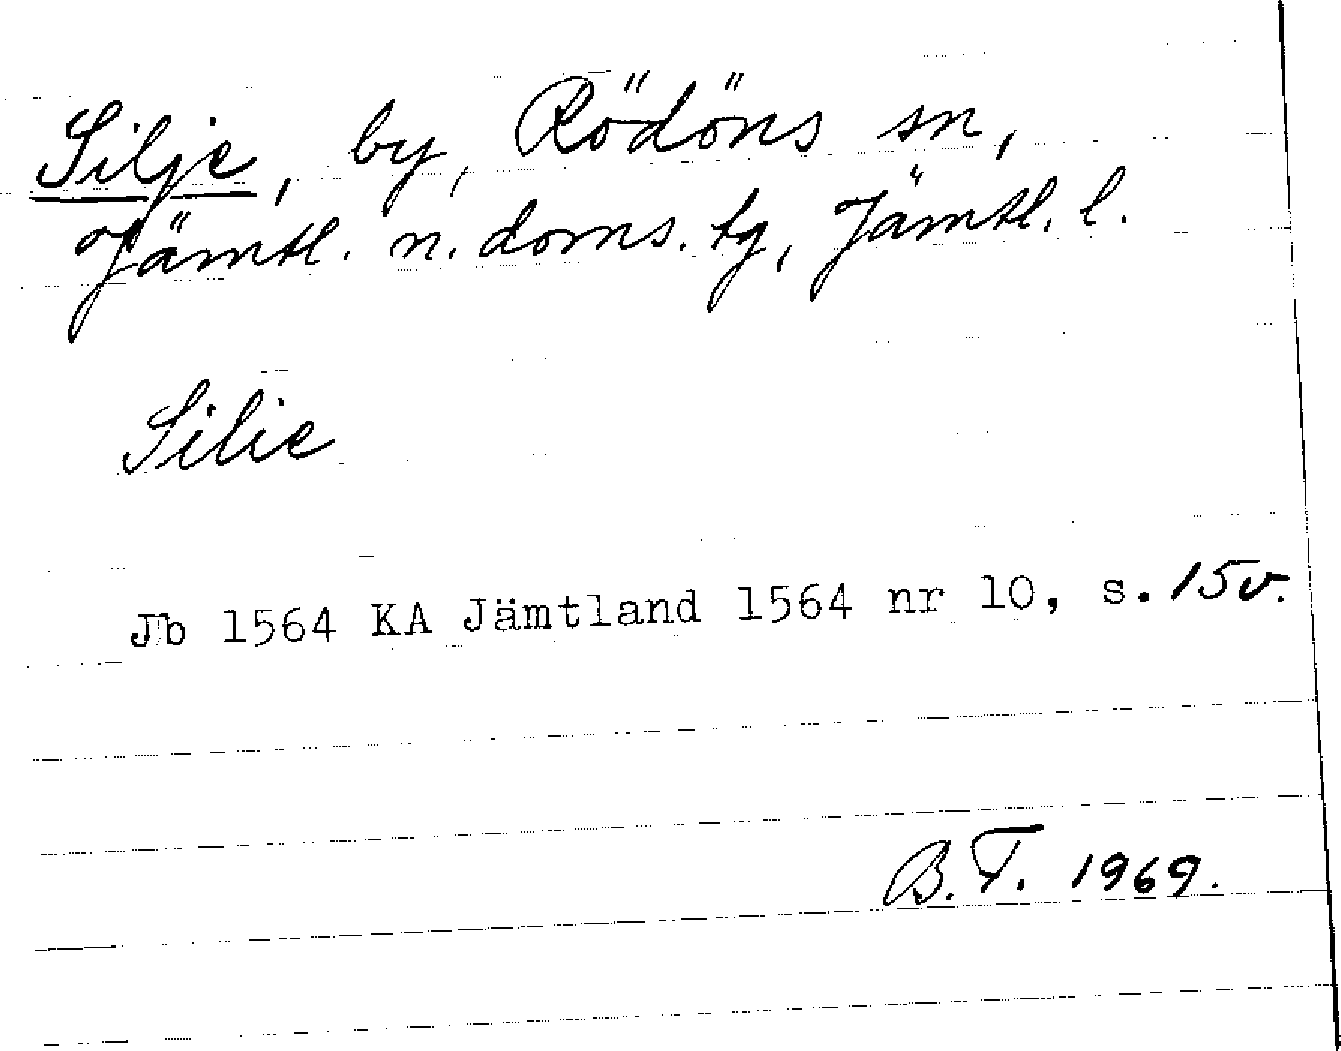 Silje, by, Rödöns sn,
Jämtl. n. doms. tg, Jämtl. l.
Silie
Jb 1564 KA Jämtland 1564 nr 10, s. 15v.
B.F. 1969.